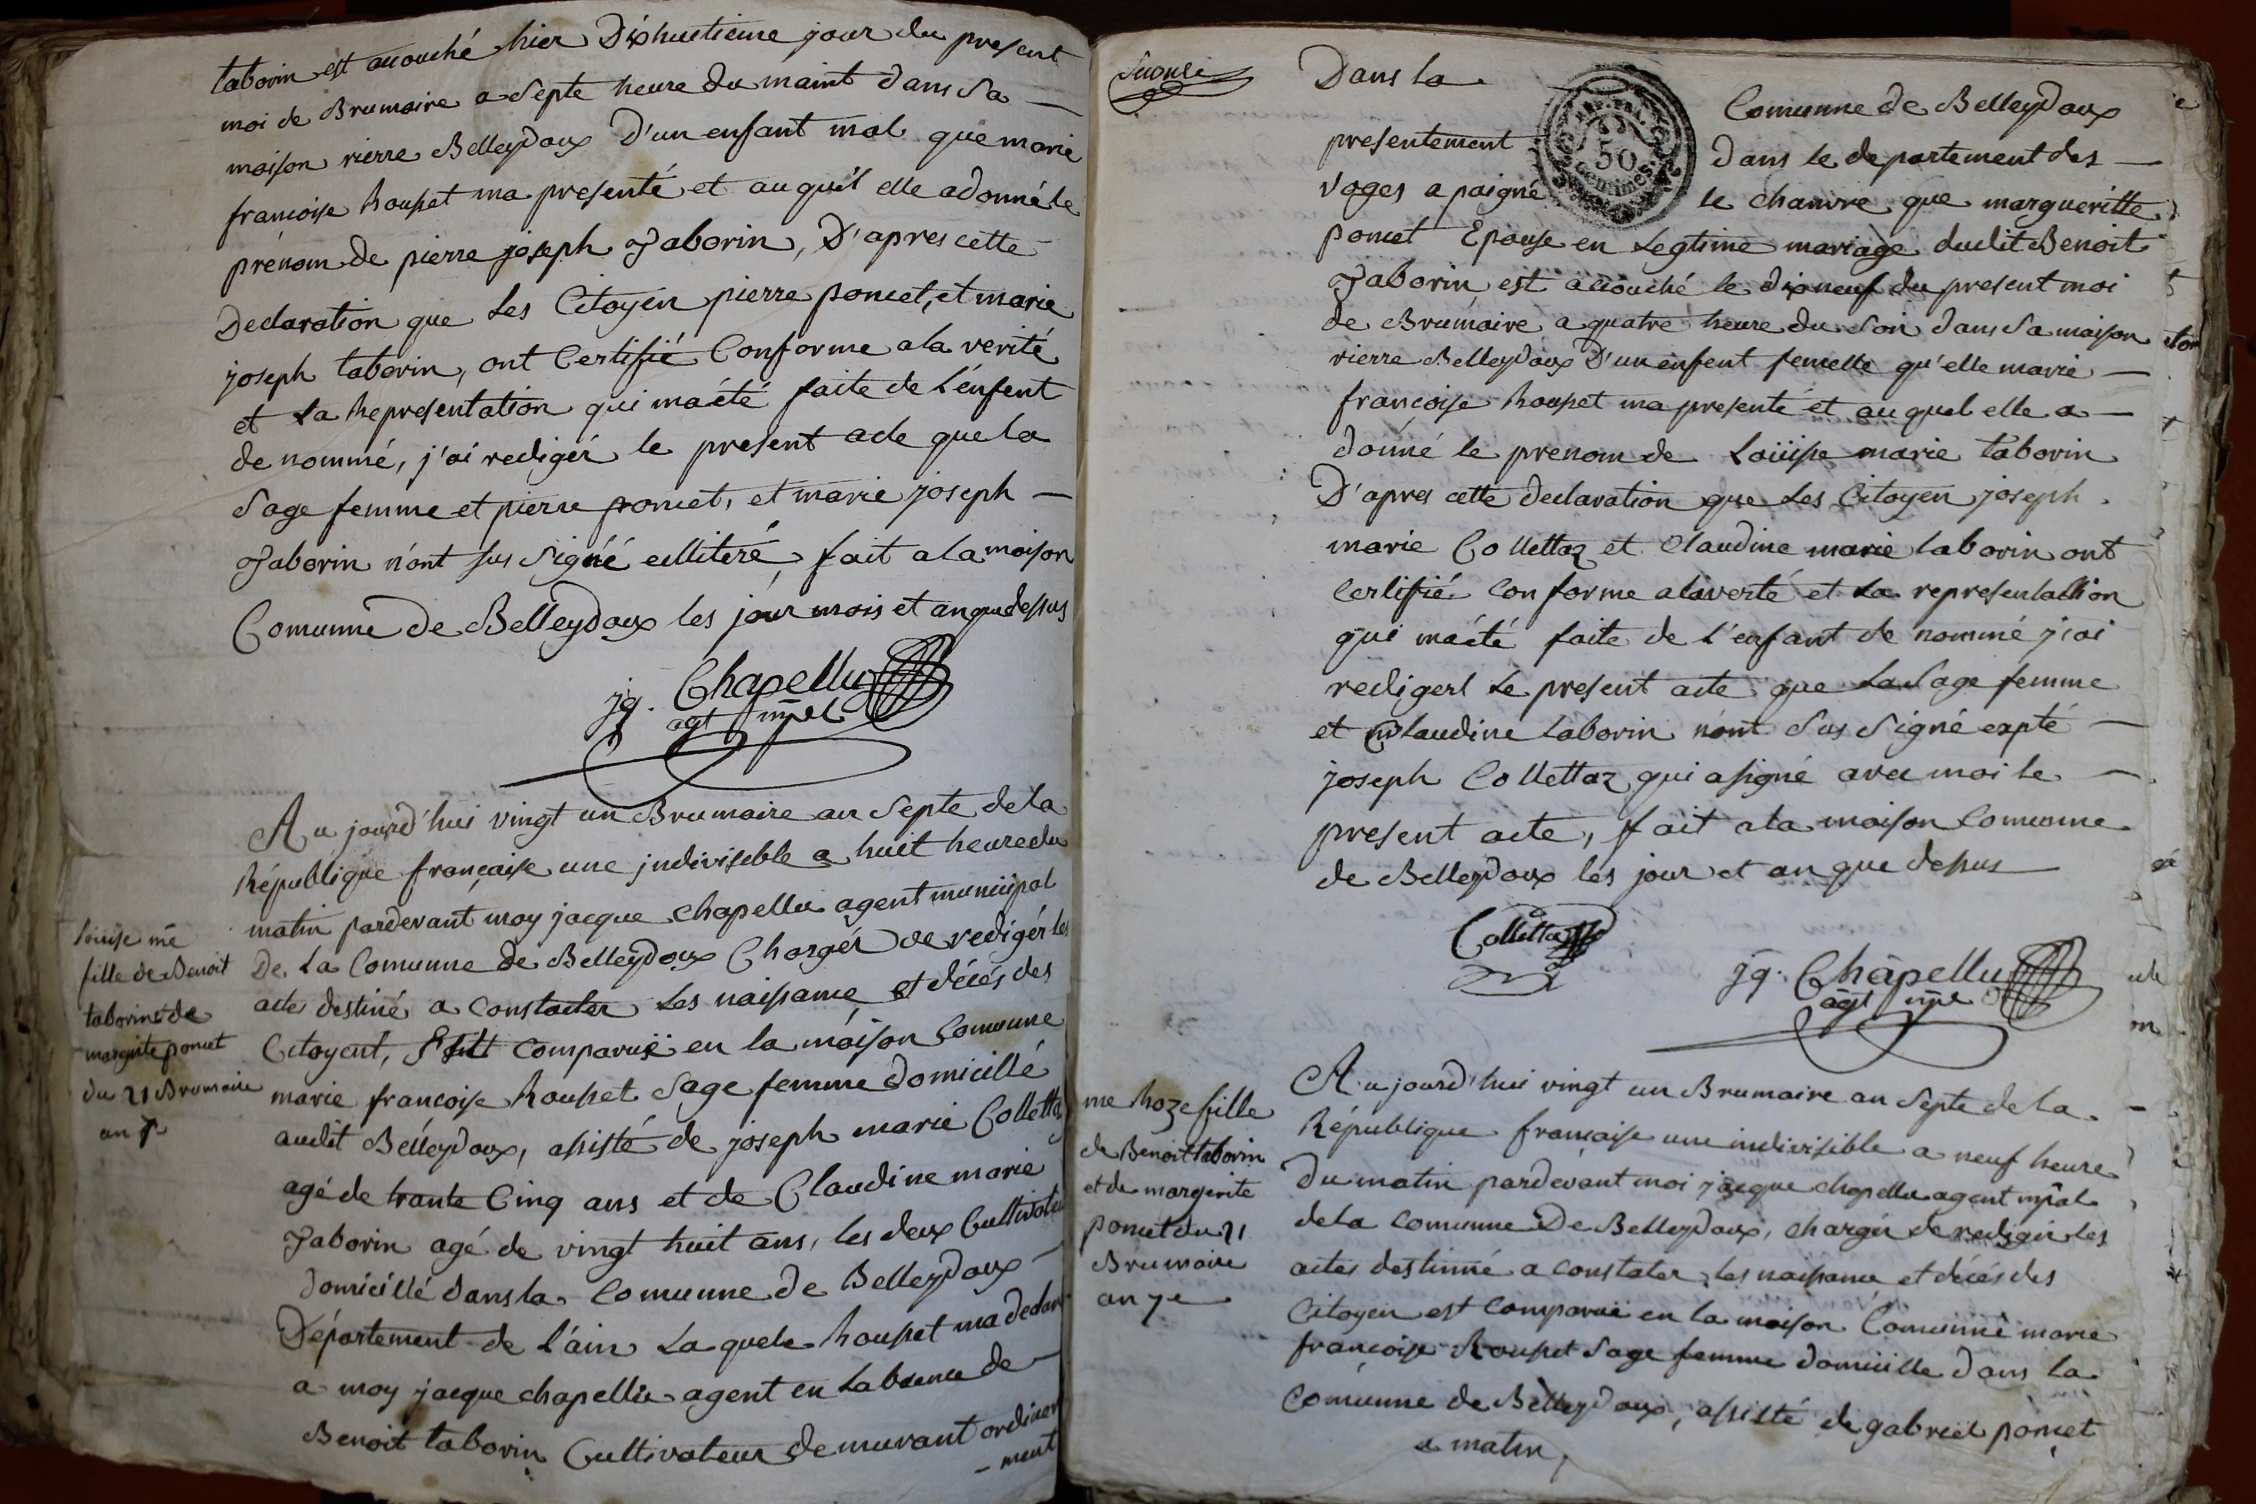 taborin est acouché hier Dixhuitieme jour du present
moi de Brumaire a Septe heure du maint dans Sa
maison rierre Belleydoux D'un enfant mal que marie
francoise Rousset ma presenté et au quél elle a donné le
prénom de pierre joseph Taborin, D'apres cette
Declaration que Les Citoyen pierre poncet, et marie
joseph taborin, ont Certifié Conforme a la verité
et La Representation qui ma été faite de L'énfent
de nommé, j'ai redigér le present acte que la
Sage femme et pierre poncet, et marie joseph
Taborin n'ont sus Signé illiteré, fait a la maison
Comunne De Belleydoux les jour mois et an que dessus
jq. Chapellu
agt mpal
Louise me
fille de Benoit
taborin et de
margrite poncet
du 21 Brumaire
an 7e
Au jourd'hui vingt un Brumaire an Septe de la
République française une jndivisible a huit heure du
matin pardevant moy jacque chapellu agent municipal
De La Comunne de Belleydoux Chargér de redigér les
actes destiné a Constater Les naissance et décés des
Citoyent, Est Comparuë en la maison Comunne
marie francoise Rousset Sage femme domicillé
audit Belleydoux, assisté de joseph marie Collettaz
agé de trante Cinq ans et de Claudine marie
Taborin agé de vingt huit ans, les deux Cultivateur
domicillé dans la Comunne de Belleydoux
Département de l'ain La quele Rousset ma declaré
a moy jacque chapellu agent en Labsence de
Benoit taborin Cultivateur demeurant ordinere
- ment
Dans la
Comunne de Belleydoux
presentement dans le departement des
Voges a paigné le chanvre que margueritte
poncet Epouse en Legtime mariage dudit Benoit
Taborin est acouché le dix neuf du present moi
de Brumaire a quatre heure du Soir dans Sa maison
rierre Belleydoux D'un enfent femelle qu'elle marie
francoise Rousset ma presenté et au quel elle a
donné le prenom de Louise marie taborin
D'apres cette declaration que Les Citoyen joseph
marie Collettaz et Claudine marie taborin ont
Certifié Conforme a la verté et La representation
qui ma été faite de L'enfant de nommé j'ai
redigert Le present acte que La Sage femme
et Claudine taborin n'ont Sus Signé expté
joseph Collettaz qui a signé avec moi le
present acte, fait a la maison Comunne
de Belleydoux lés jour et an que dessus
Collettaz
jq. Chapellu
agt mpal
50
Centimes
me Roze fille
de Benoit taborin
et de margerite
poncet du 21
Brumaire
an 7e
Au jourd'hui vingt un Brumaire an Septe de la
République francaise une indivisible a neuf heure
du matin pardevant moi jacque chapellu agent mpal
de la Comunne De Belleydoux, chargér de redigér les
actes destinné a constater les naissance et décés des
Citoyen est Comparuë en la maison Comunne marie
francoise Rousset Sage femme domicille dans la
Comunne de Belleydoux, assisté de gabriel poncet
a matin,